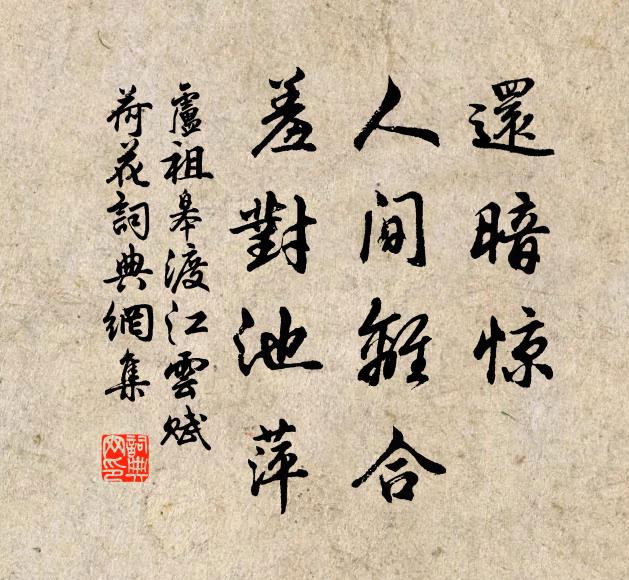 還暗惊
人间離合
羞對池萍
盧祖皋渡江雲賦
荷花詞典網集
詞典
网印